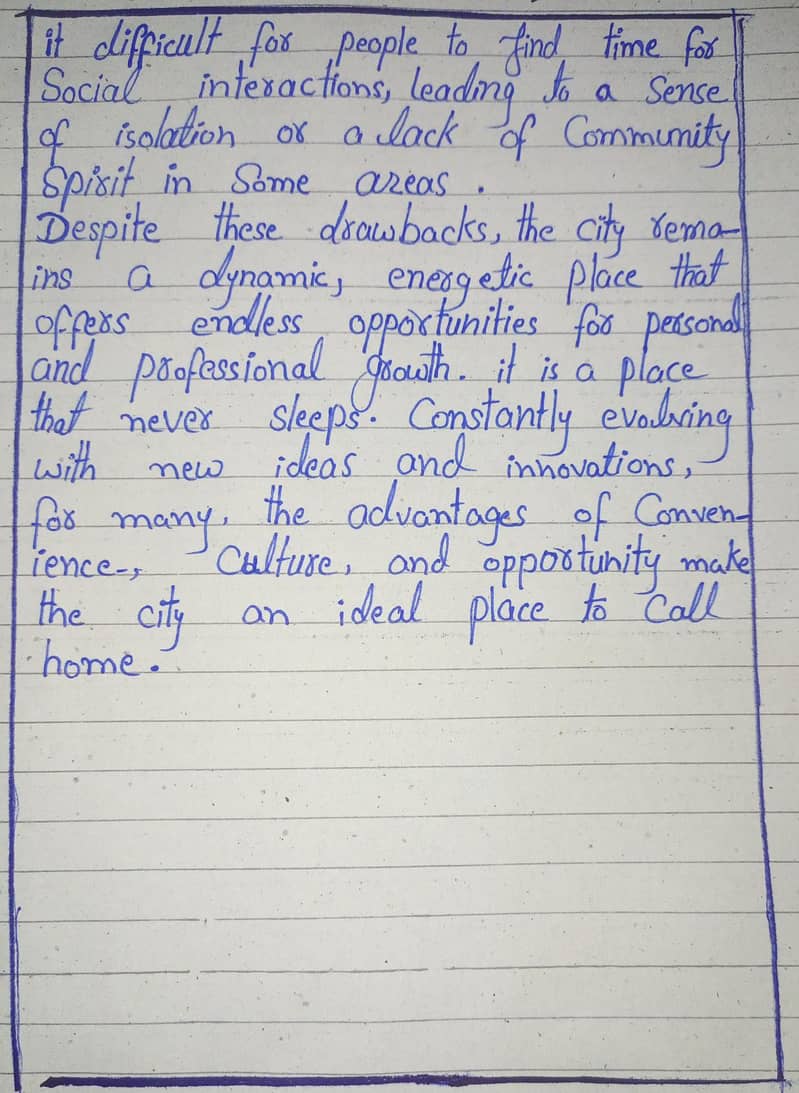 it difficult for people to find time for
Social interactions, leading to a sense
of isolation or a lack of Community
Spirit in Some areas .
Despite these drawbacks, the city rema-
ins a dynamic, energetic place that
offers endless opportunities for personal
and professional growth. it is a place
that never sleeps. Constantly evolving
with new ideas and innovations,
for many, the advantages of Conven-
ience-, Culture, and opportunity make
the city an ideal place to Call
home.